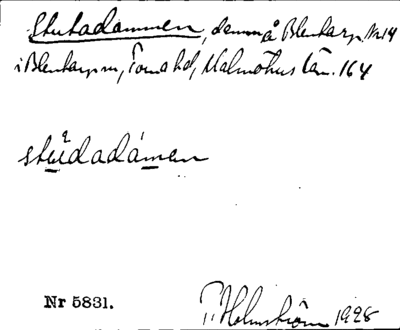 Stutadammen, damm å Blentarp Nr 14
i Blentarp sn, Torna hd, Malmöhus län. 164
stu̱dadámen
Nr 5831.
Helmström 1928